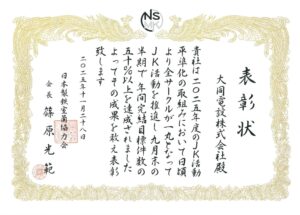 NS
表彰状
大同電設株式会社殿
貴社は二〇二五年度のJK活動
平準化の取組みにおいて日頃
より全サークルが一丸となって
JK活動を推進し九月末の
半期で年間完結目標件数の
五十%以上を達成されました
よってその成果を敢え表彰
致します
二〇二五年十一月二十八日
日本製鉄室蘭協力会
会長 篠原光範